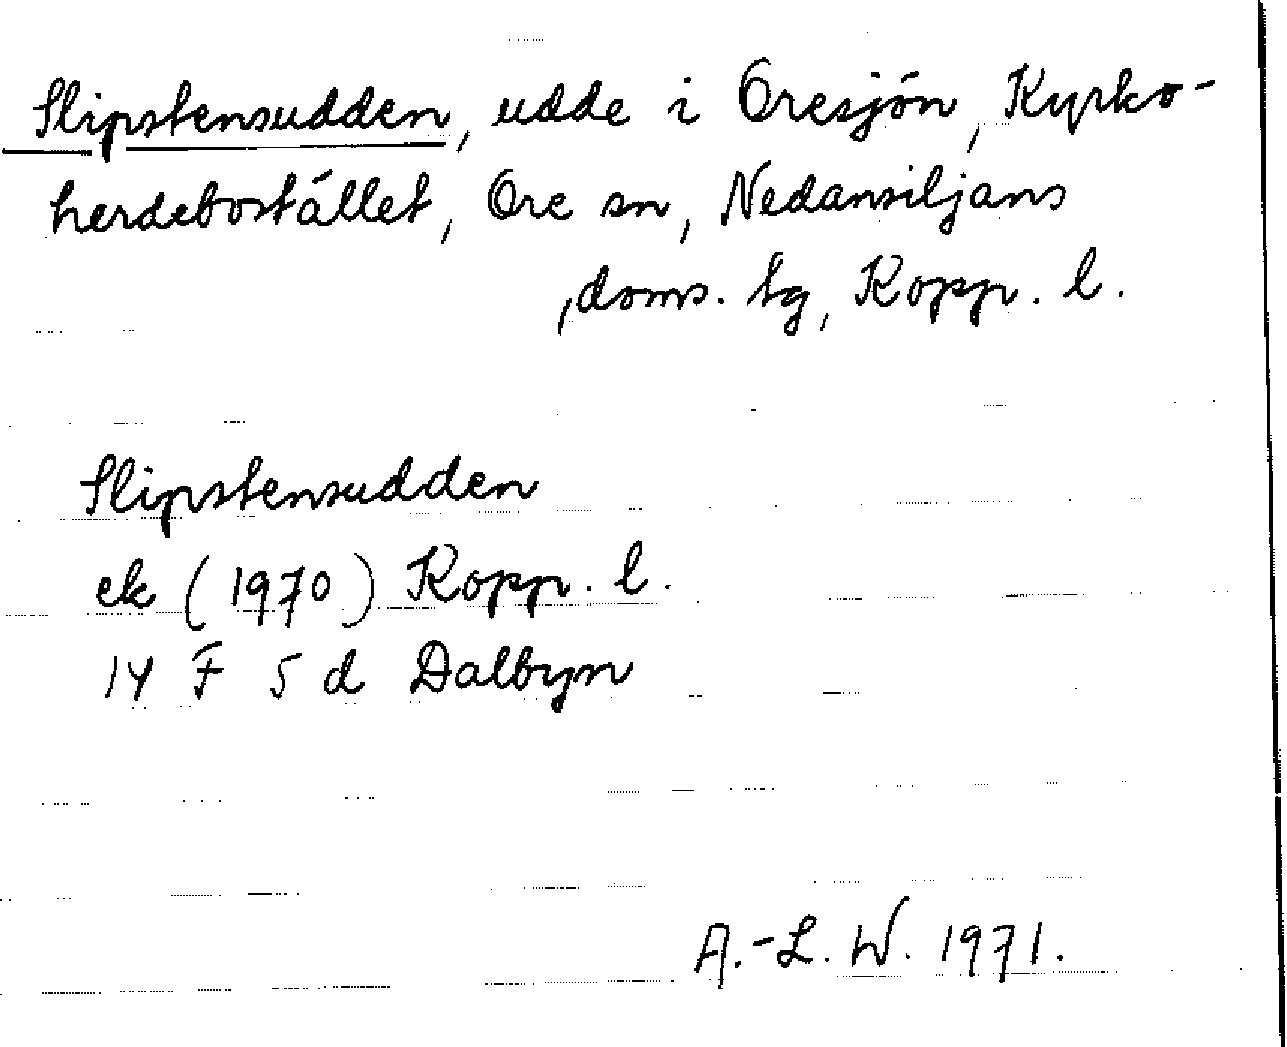 Slipstensudden, udde i Oresjön, Kyrko-
herdebostället, Ore sn, Nedansiljans
doms. tg, Kopp. l.
Slipstensudden
ek (1970) Kopp. l.
14 F 5 d Dalbyn
A.-L. W. 1971.